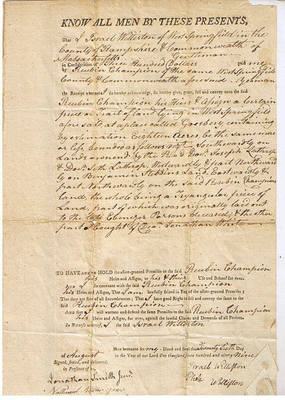 KNOW ALL MEN BY THESE PRESENTS,
I Israel Williston of West Springfield in the
County of Hampshire & Commonwealth of
Massachusetts Gentleman
In Consideration of Three Hundred Dollars paid me
by Reubin Champion of the same West Springfield
County & Commonwealth aforesaid
the Receipt whereof I do hereby acknowledge, do hereby give, grant, sell and convey unto the said
Reubin Champion his Heirs & Assigns a Certain
piece or Tract of Land lying in West Springfield
aforesaid at a place called
Eighteen Acres be the same more
or less bounded as follows Southwardly on
Lands owned by the Revd Doctr Joseph Lathrop
& Doctr Seth Lathrop Westwardly & part Northward
ly on Benjamin Stebbins Land Eastwardly &
part Northwardly on the said Reubin Champion
Land, the whole being a piece of
Land, part of which was originally laid out
to Ebenezer Parsons deceased & the other
part Bought of Jonathan
TO HAVE and to HOLD the afore-granted Premises to the said Reubin Champion
his Heirs and Assigns, to his & their Use and Behoof for ever.
I do covenant with the said Reubin Champion
his Heirs and Assigns, That I am lawfully seized in Fee of the afore-granted Premises;
That they are free of all Incumbrances; That I have good Right to sell and convey the same to the
said Reubin Champion
And that I will warrant and defend the same Premises to the said Reubin Champion
his Heirs and Assigns for ever, against the lawful Claims and Demands of all Persons.
In Witness whereof, I the said Israel Williston
have hereunto set my Hand and Seal this Twenty Sixth Day
of August in the Year of our Lord One thousand and Nine
Signed, Sealed, and delivered,
in Presence of
Israel Williston
Jonathan Smith Junr
Williston